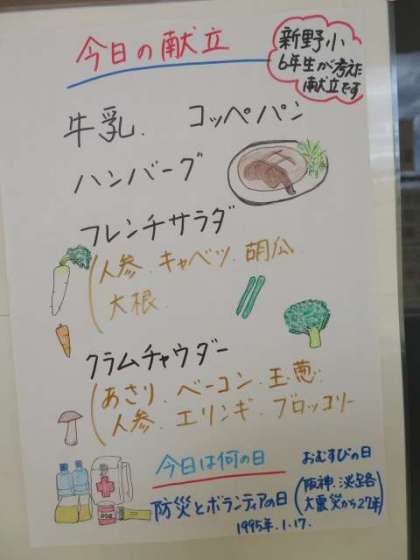 今日の献立
新野小
6年生が考えた
献立です
牛乳. コッペパン
ハンバーグ
フレンチサラダ
(人参.キャベツ.胡瓜
大根.
クラムチャウダー
(あさり.ベーコン.玉葱.
人参.エリンギ.ブロッコリー
今日は何の日
おむすびの日
防災とボランティアの日
(阪神.淡路
大震災から27年)
1995年.1.17.